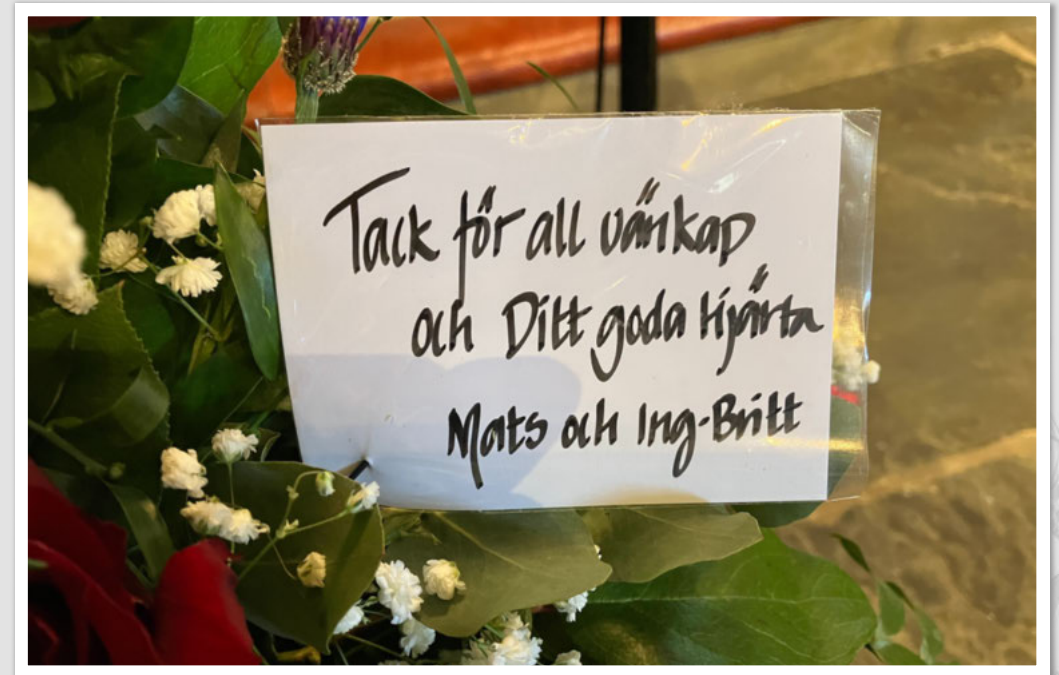 Tack för all vänkap
och Ditt goda Hjärta
Mats och Ing-Britt